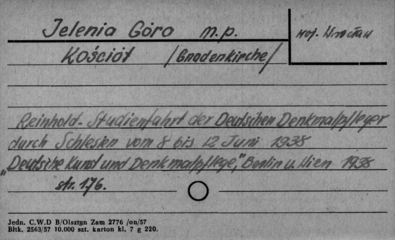 Jelenia Góra n.p.
woj. Wrocław
Kościół /Gnadenkirche/
Reinhold - Studienfahrt der Deutschen Denkmalpfleger
durch Schlesien vom 8 bis 12 Juni 1938
"Deutsche Kunst und Denkmalpflege", Berlin u. Wien 1938
str. 176.
Jedn. C.W.D B/Olsztyn Zam 2776 /on/57
Bltk. 2563/57 10.000 szt. karton kl. 7 g 220.